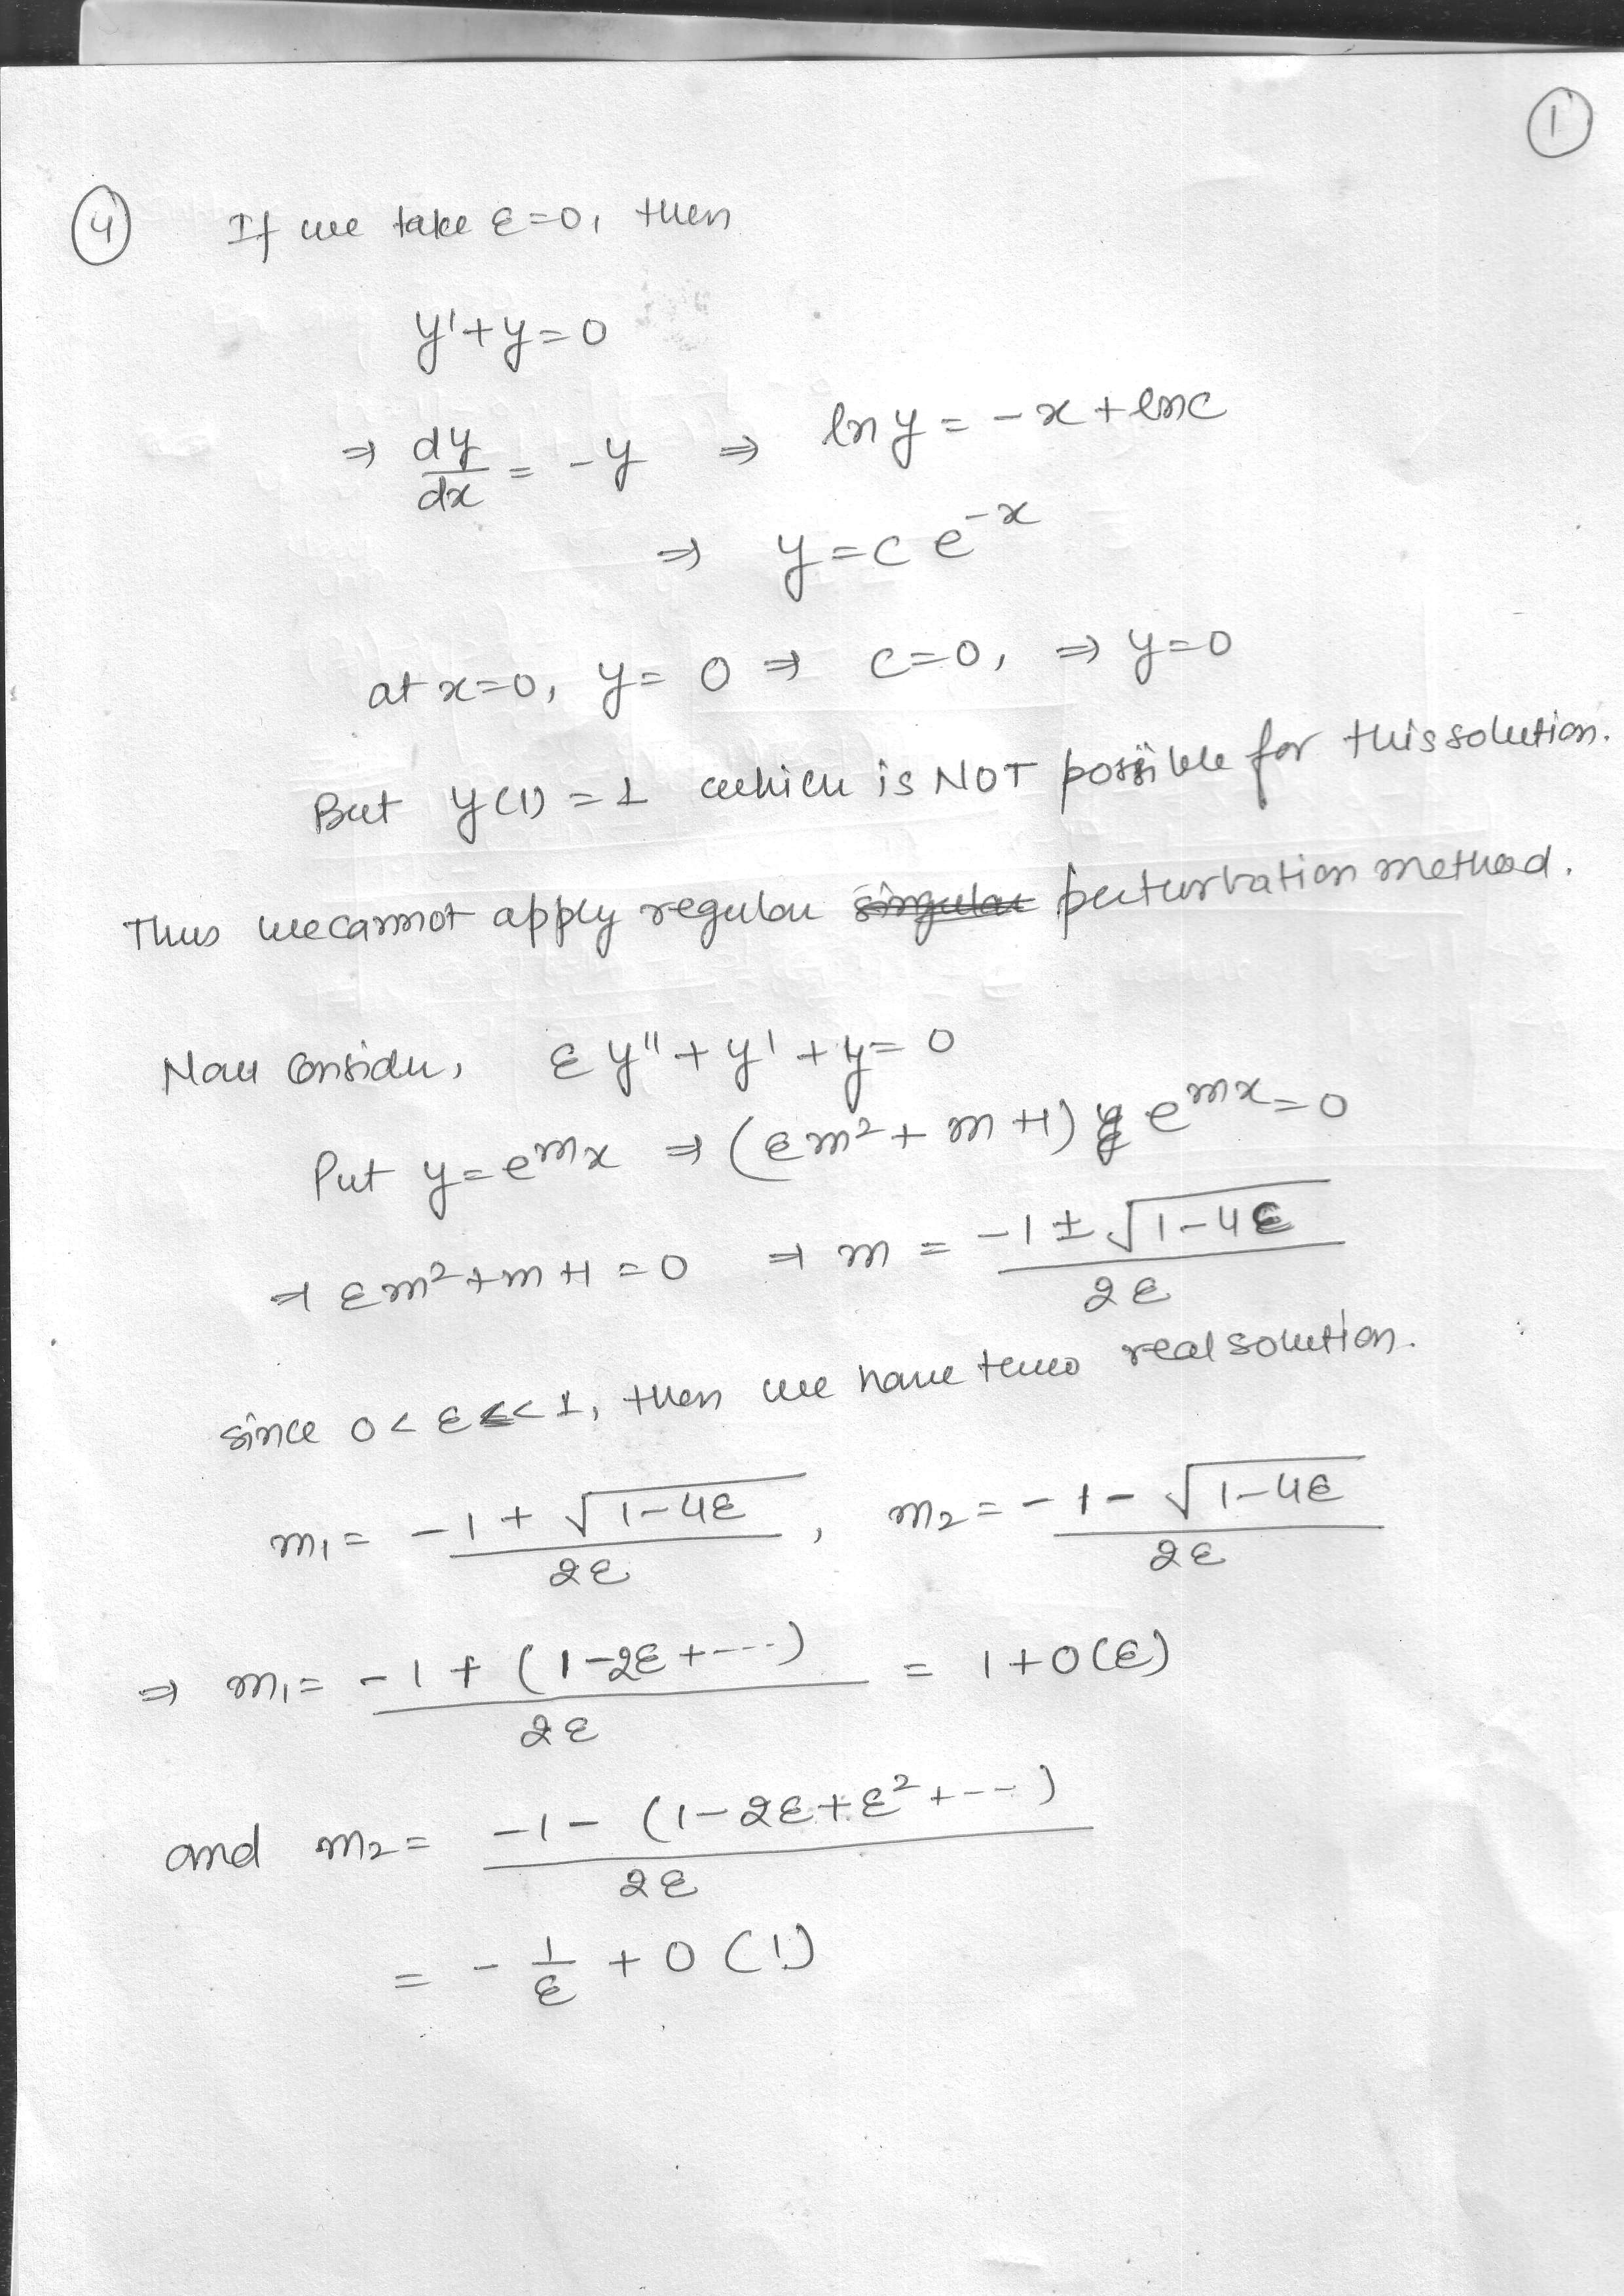 1
4 If we take ε=0, then
y'+y=0
⇒ dy/dx = -y ⇒ ln y = -x + ln c
⇒ y = c e^{-x}
at x=0, y=0 ⇒ c=0, ⇒ y=0
But y(1)=1 which is NOT possible for this solution.
Thus we cannot apply regular singular perturbation method.
Now consider, εy''+y'+y=0
Put y=e^{mx} ⇒ (εm²+m+1) e^{mx}=0
⇒ εm²+m+1=0 ⇒ m = (-1±√(1-4ε))/2ε
since 0<ε<<1, then we have two real solution.
m₁= (-1+√(1-4ε))/2ε , m₂= (-1-√(1-4ε))/2ε
⇒ m₁= (-1+(1-2ε+----))/2ε = 1+O(ε)
and m₂= (-1-(1-2ε+ε²+---))/2ε
= -1/ε + O(1)